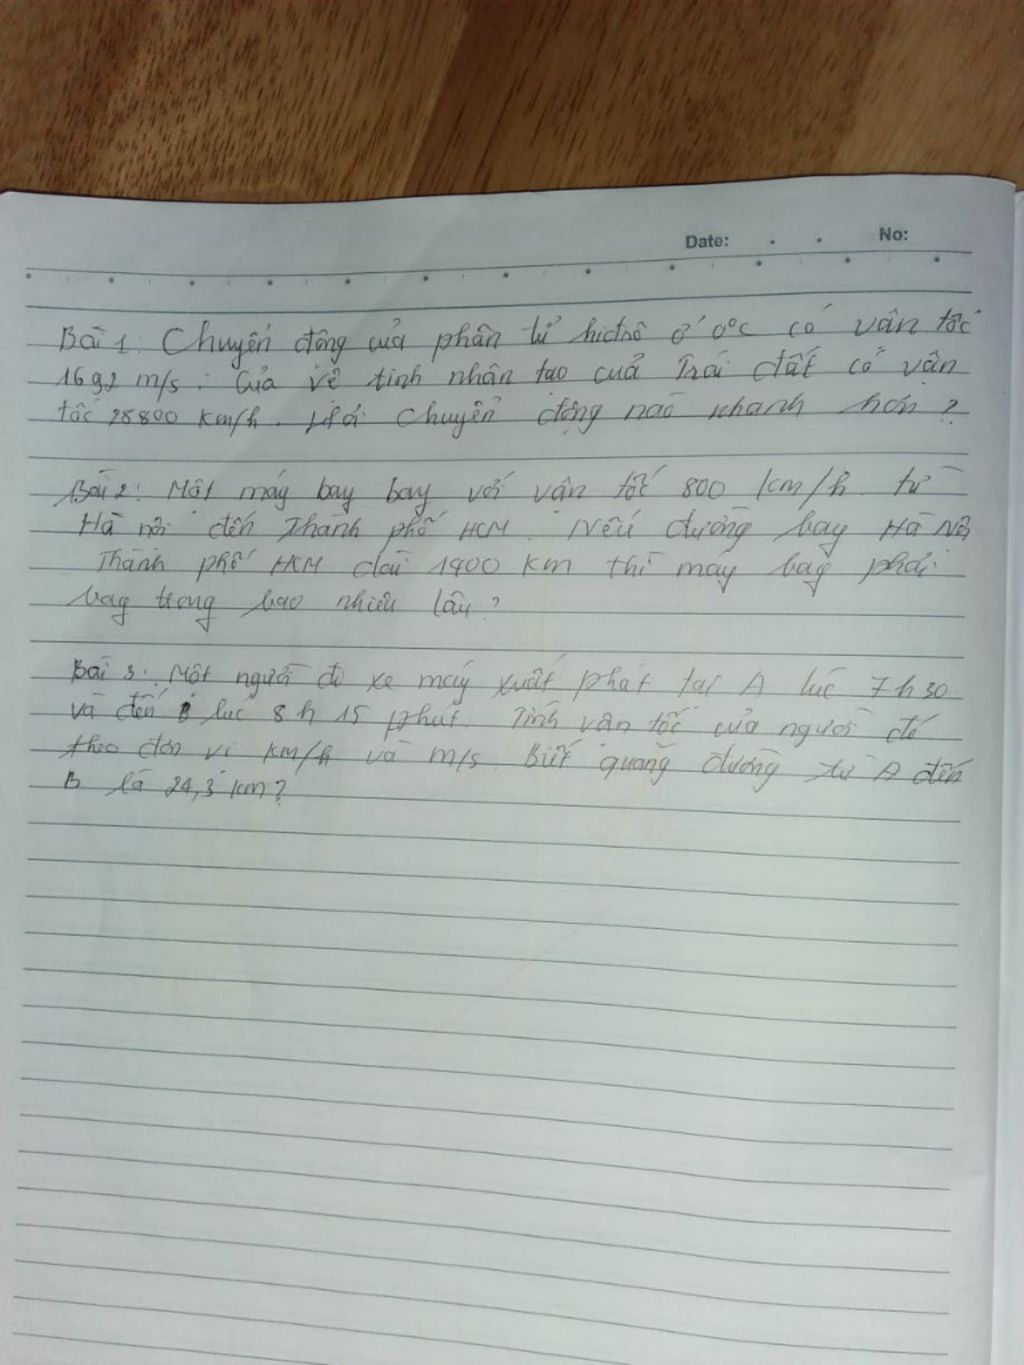 Date: . . No:
Bài 1: Chuyển động của phân tử hiđrô ở 0°C có vận tốc
1692 m/s. Của vệ tinh nhân tạo của Trái đất có vận
tốc 28800 km/h. Hỏi chuyển động nào nhanh hơn?
Bài 2: Một máy bay bay với vận tốc 800 km/h từ
Hà nội đến Thành phố HCM. Nếu đường bay Hà Nội
Thành phố HCM dài 1400 km thì máy bay phải
bay trong bao nhiêu lâu?
Bài 3: Một người đi xe máy xuất phát tại A lúc 7h30
và đến B lúc 8h 15 phút. Tính vận tốc của người đó
theo đơn vị km/h và m/s. Biết quãng đường từ A đến
B là 24,3 km?